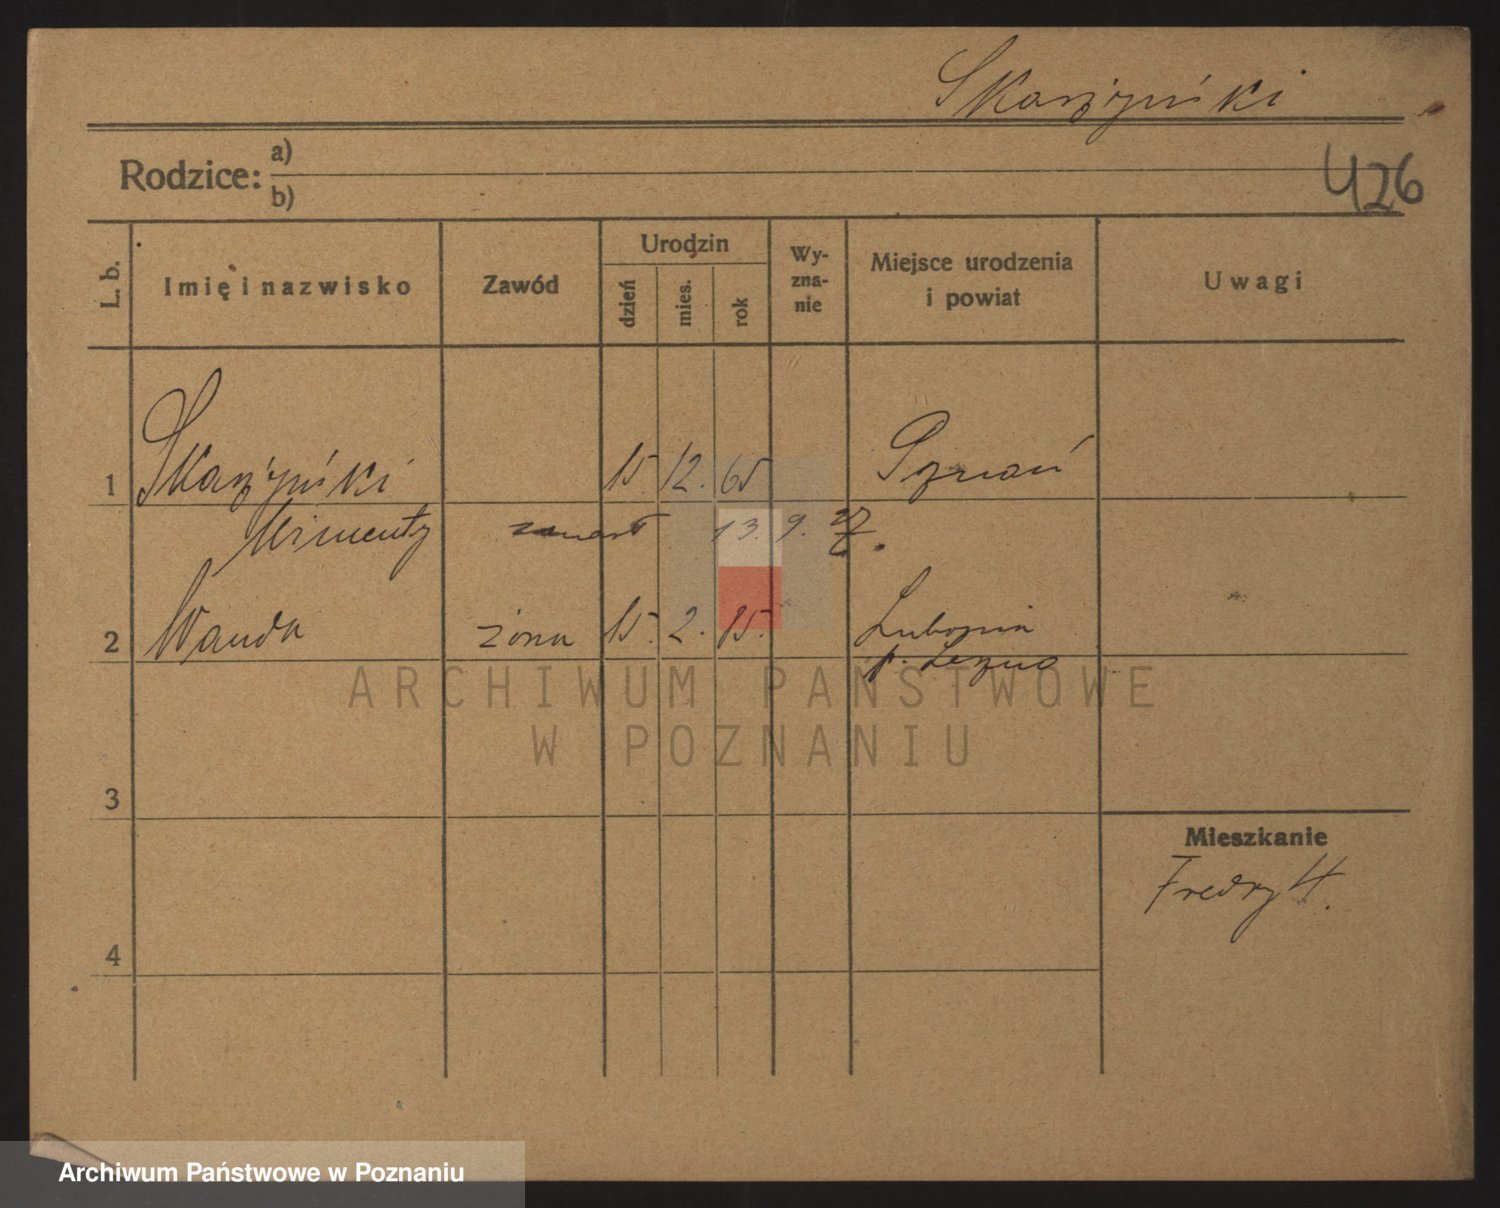 Skarżyński
Rodzice: a)
b)
426
L. b.
Imię i nazwisko
Zawód
Urodzin
dzień
mies.
rok
Wy-
zna-
nie
Miejsce urodzenia
i powiat
Uwagi
1 Skarżyński 15. 12. 65 Poznań
zmarł 13. 9. 27.
2 Wanda żona 15. 2. 85.
3
4
Mieszkanie
Fredry
ARCHIWUM PAŃSTWOWE
W POZNANIU
Archiwum Państwowe w Poznaniu